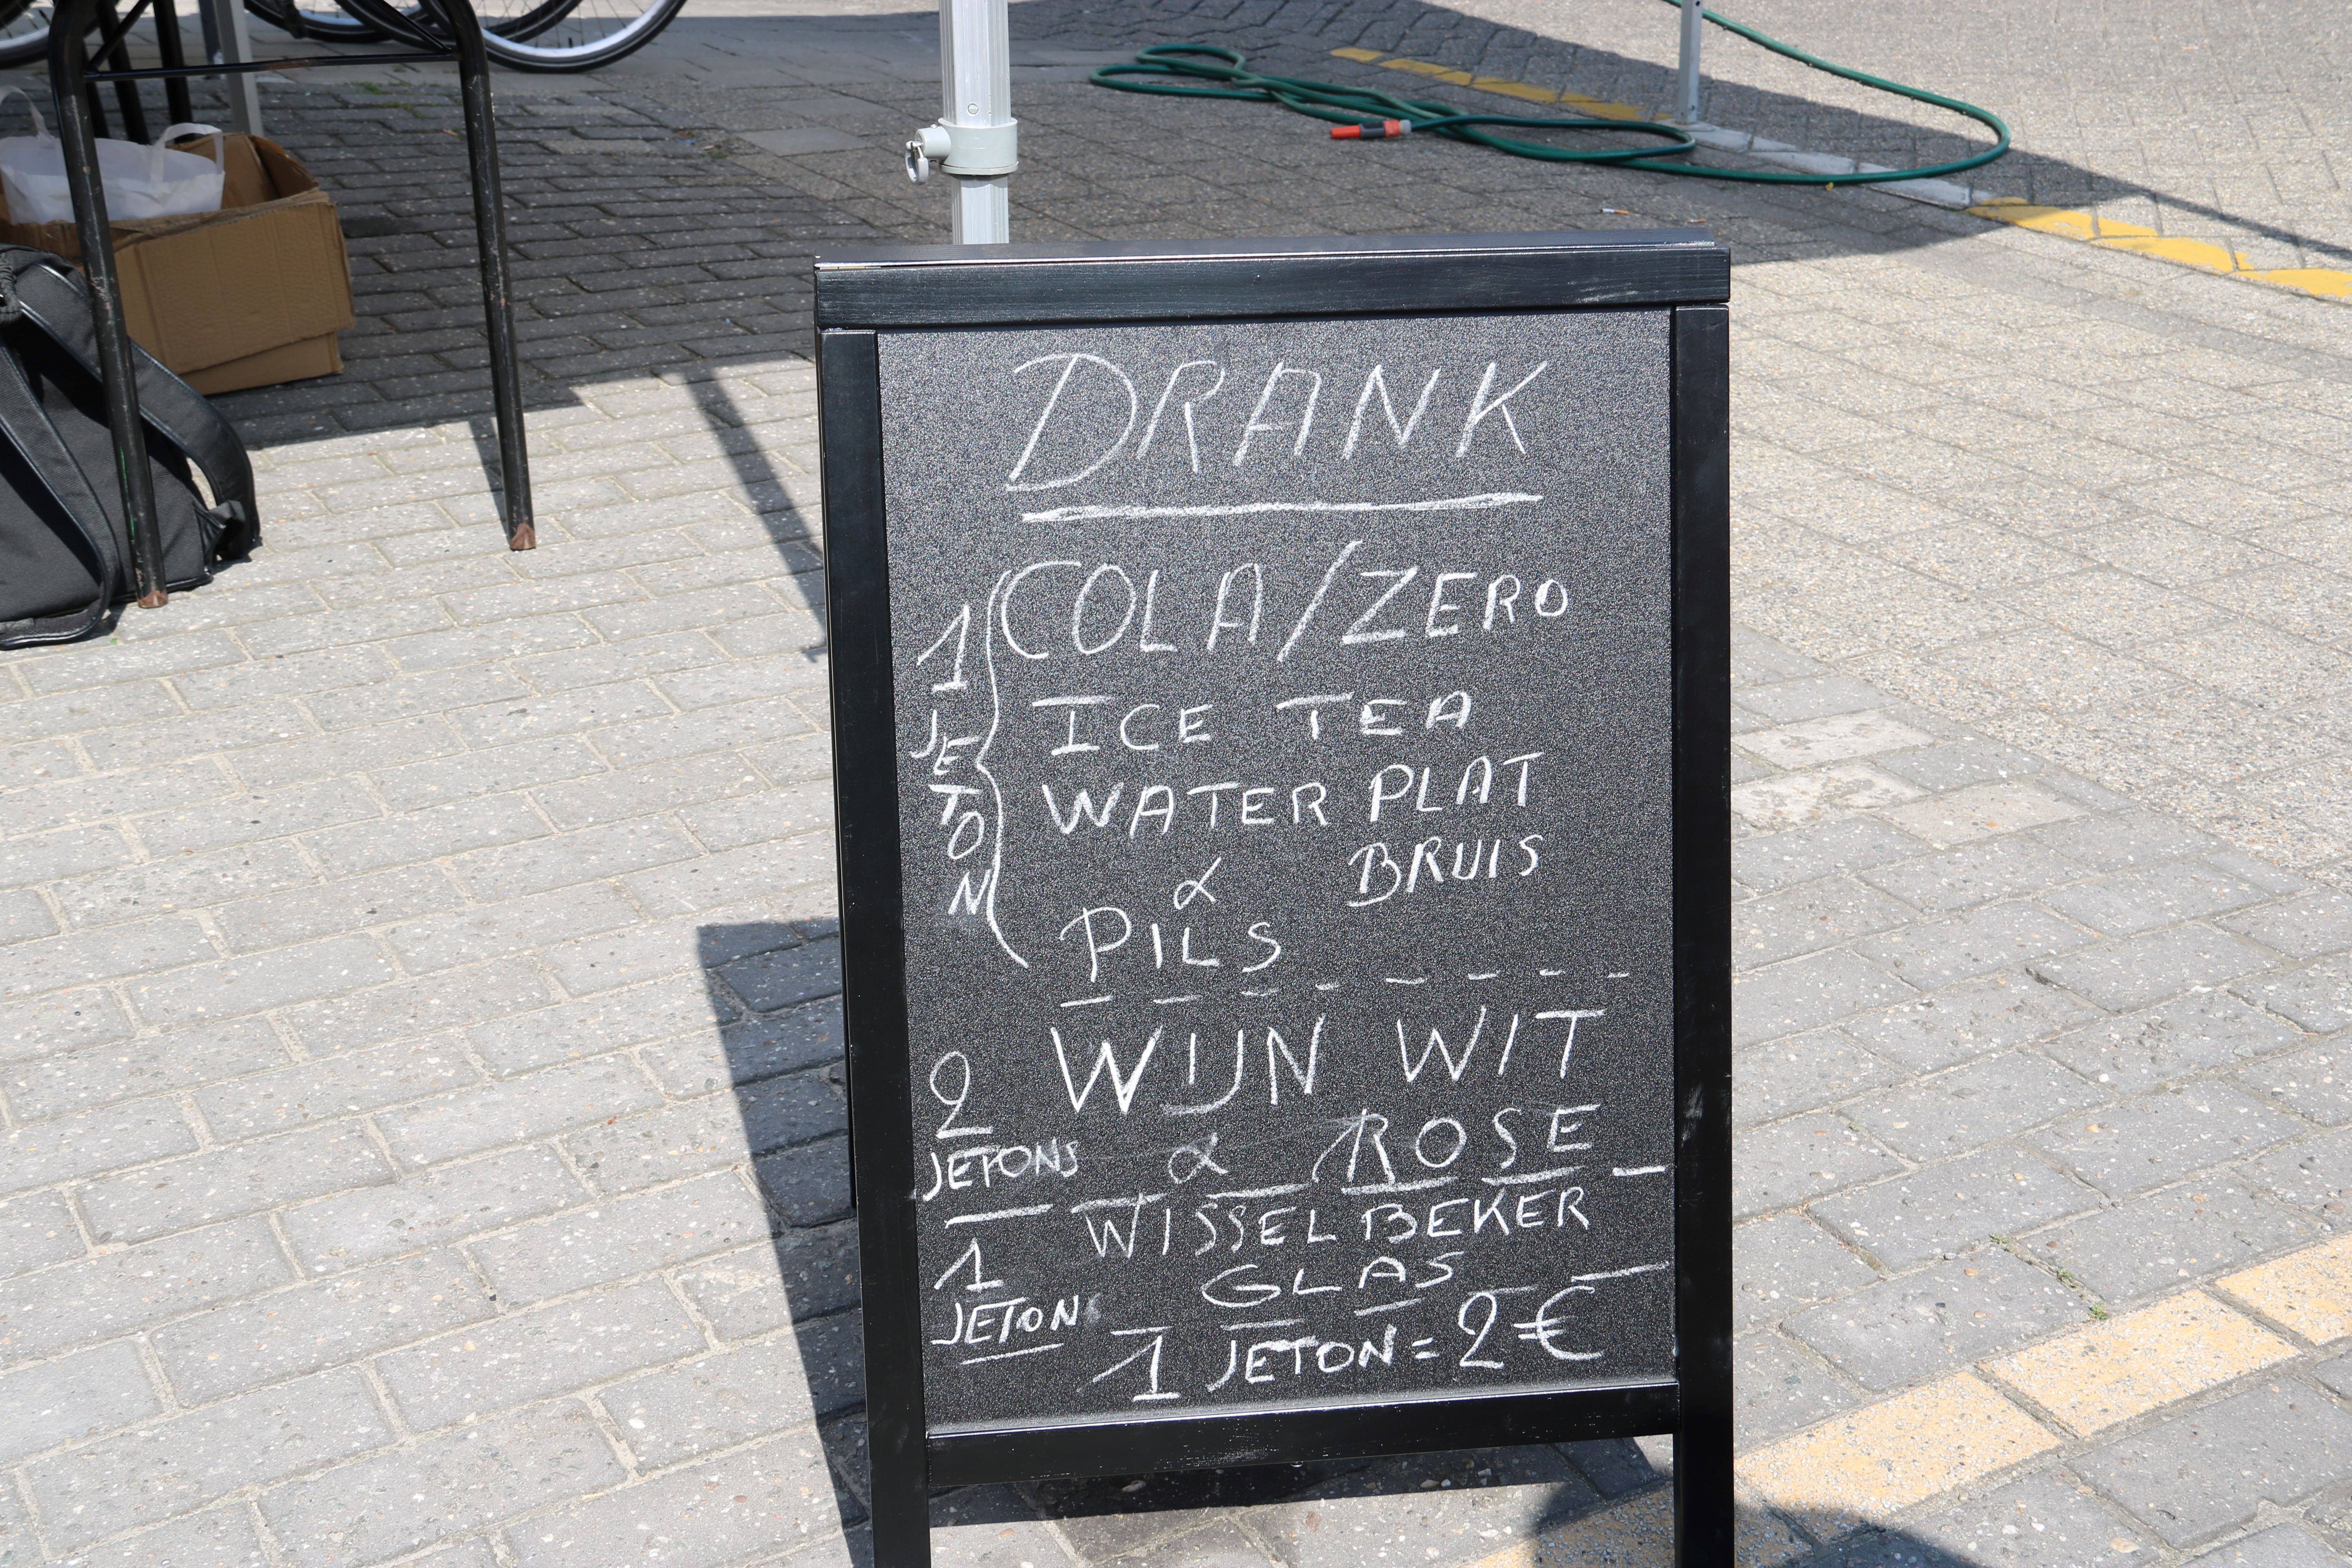 DRANK
1 JETON
COLA/ZERO
ICE TEA
WATER PLAT
& BRUIS
PILS
2 JETONS
WIJN WIT
& ROSE
1 JETON
WISSELBEKER
GLAS
1 JETON = 2€